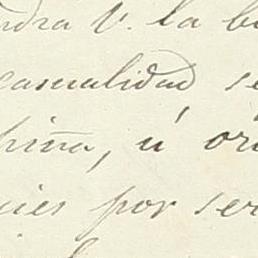 ndra V. la b
casualidad se
piña, ú or
cies por ser